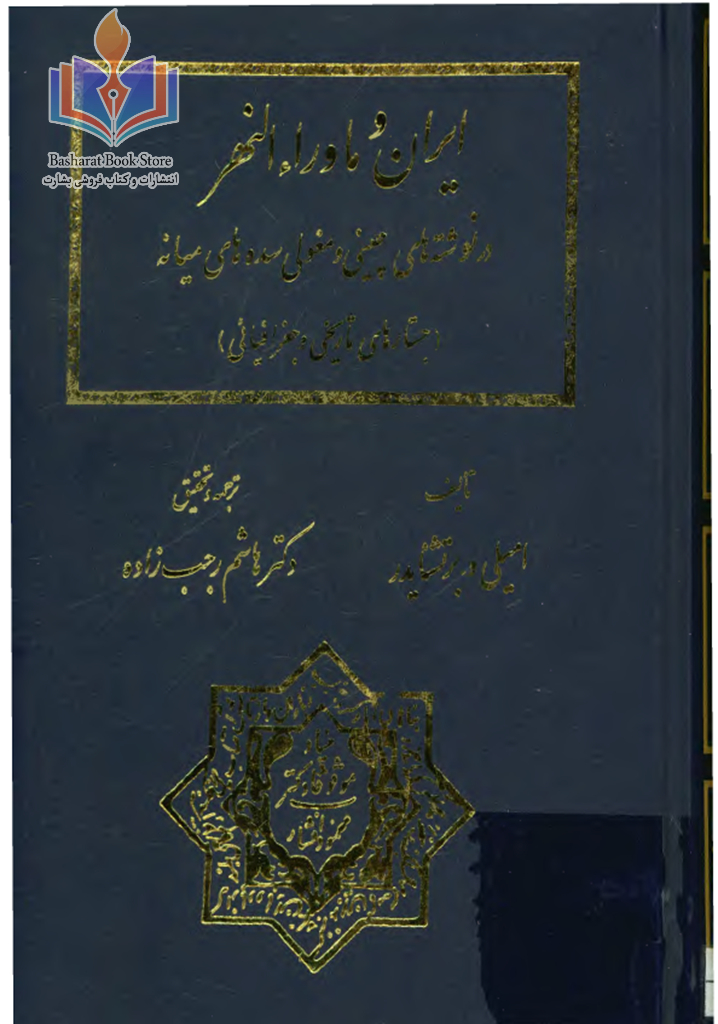 Basharat Book Store
انتشارات و کتاب فروشی بشارت
ایران و ماوراء النهر
در نوشته‌های چینی و مغولی سده‌های میانه
(جستارهای تاریخی و جغرافیائی)
تألیف
امیلی و. برتشنایدر
ترجمه و تحقیق
دکتر هاشم رجب‌زاده
بنیاد
موقوفات دکتر
محمود افشار